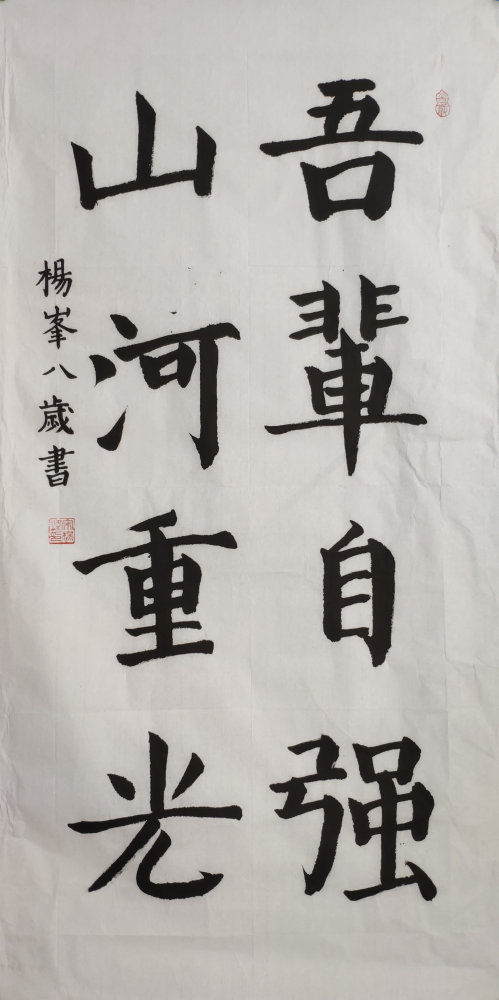 吾輩自强
山河重光
楊峯八歲書